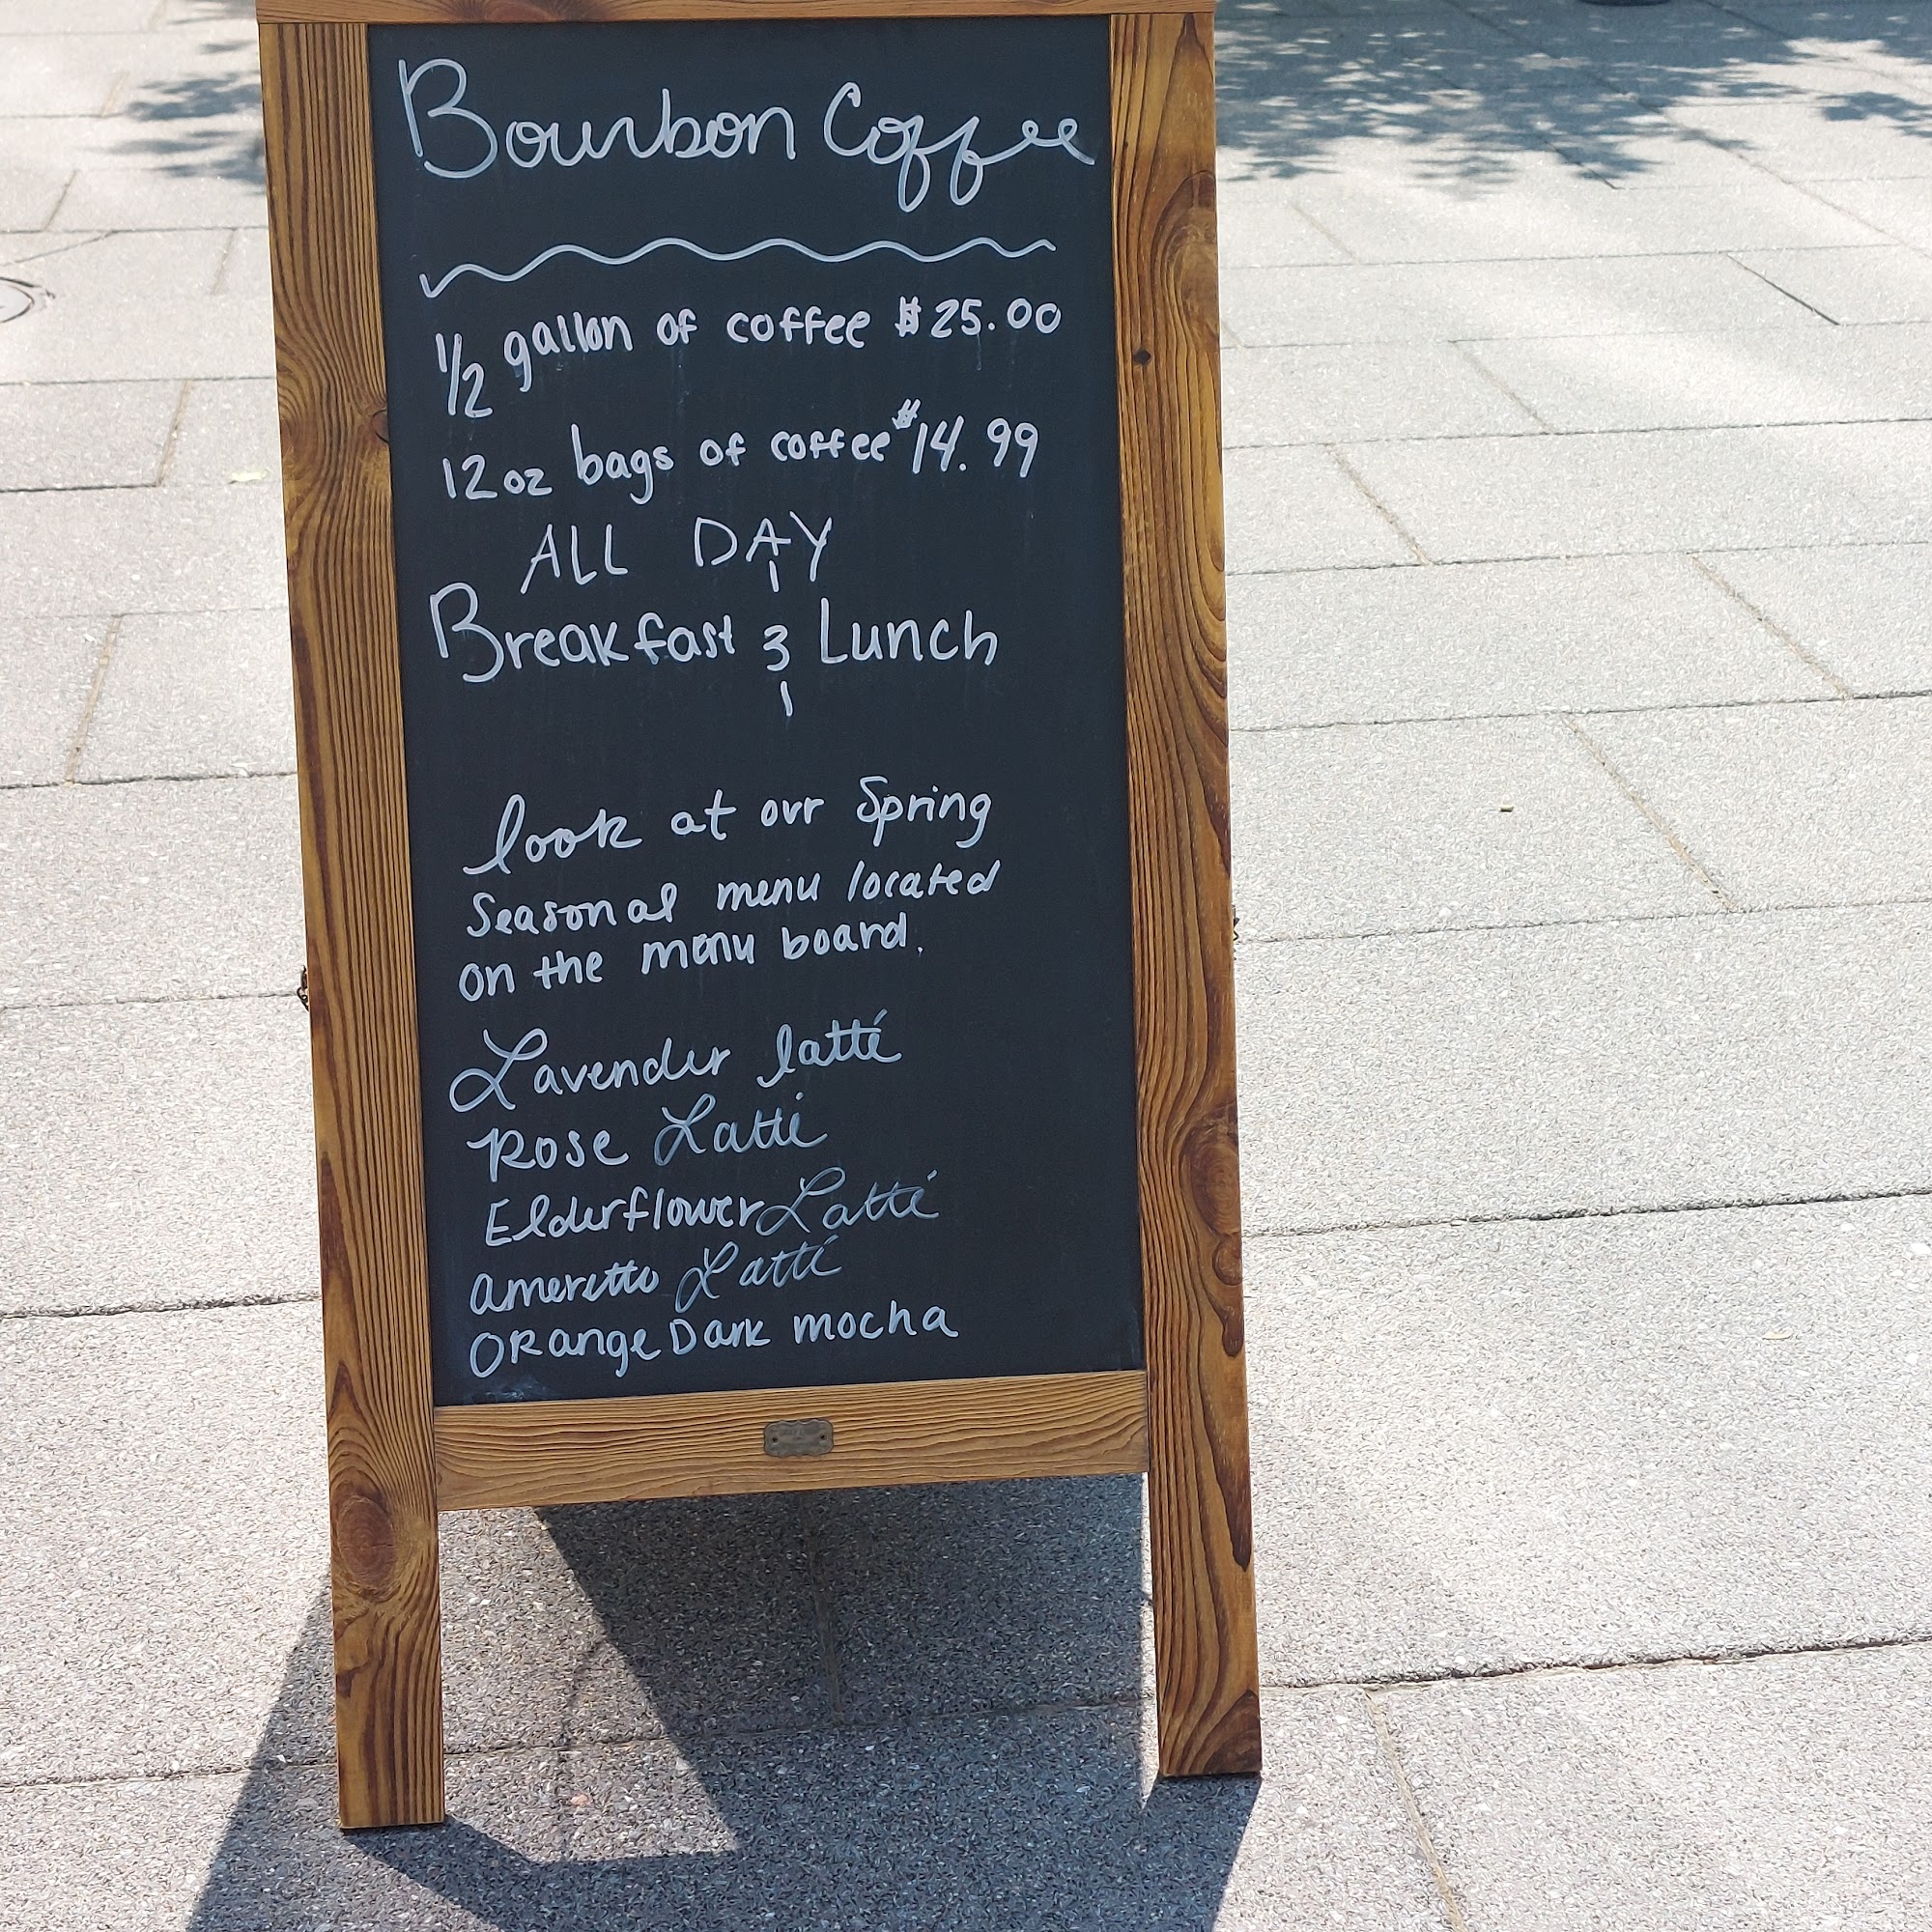 Bourbon Coffee
1/2 gallon of coffee $25.00
12oz bags of coffee $14.99
ALL DAY
Breakfast & Lunch
look at our Spring
Seasonal menu located
on the menu board.
Lavender latté
Rose Latté
Elderflower Latté
ameretto Latté
ORange Dark mocha